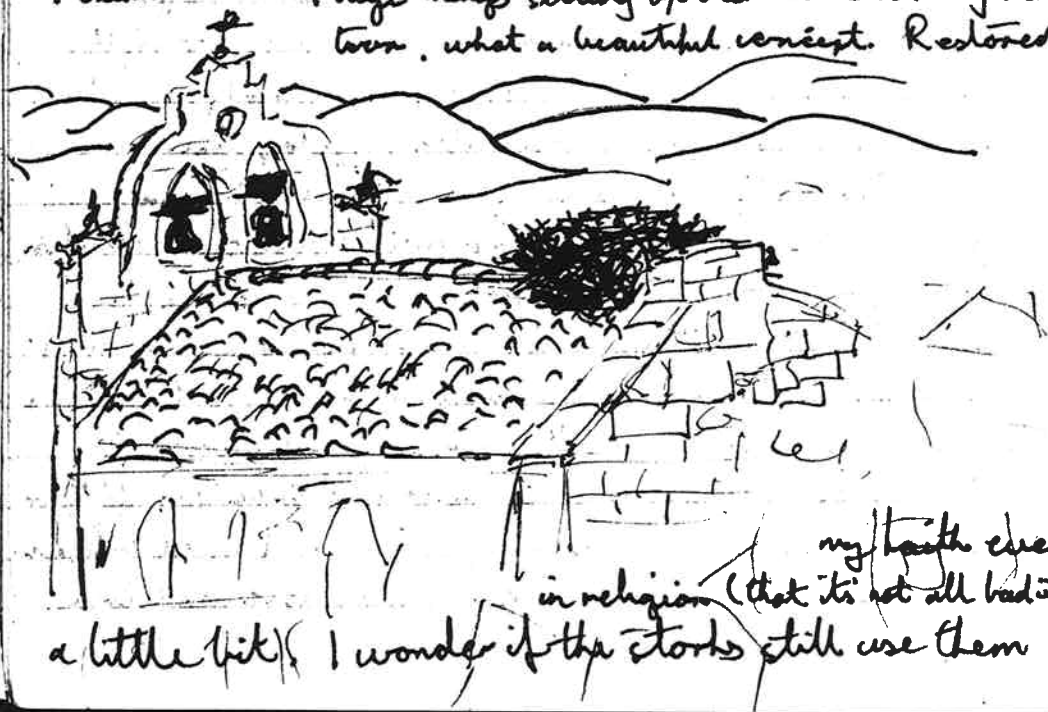 town, what a beautiful concept. Restored
my faith eve
in religion (that it's not all bad i
a little bit). I wonder if the storks still use them